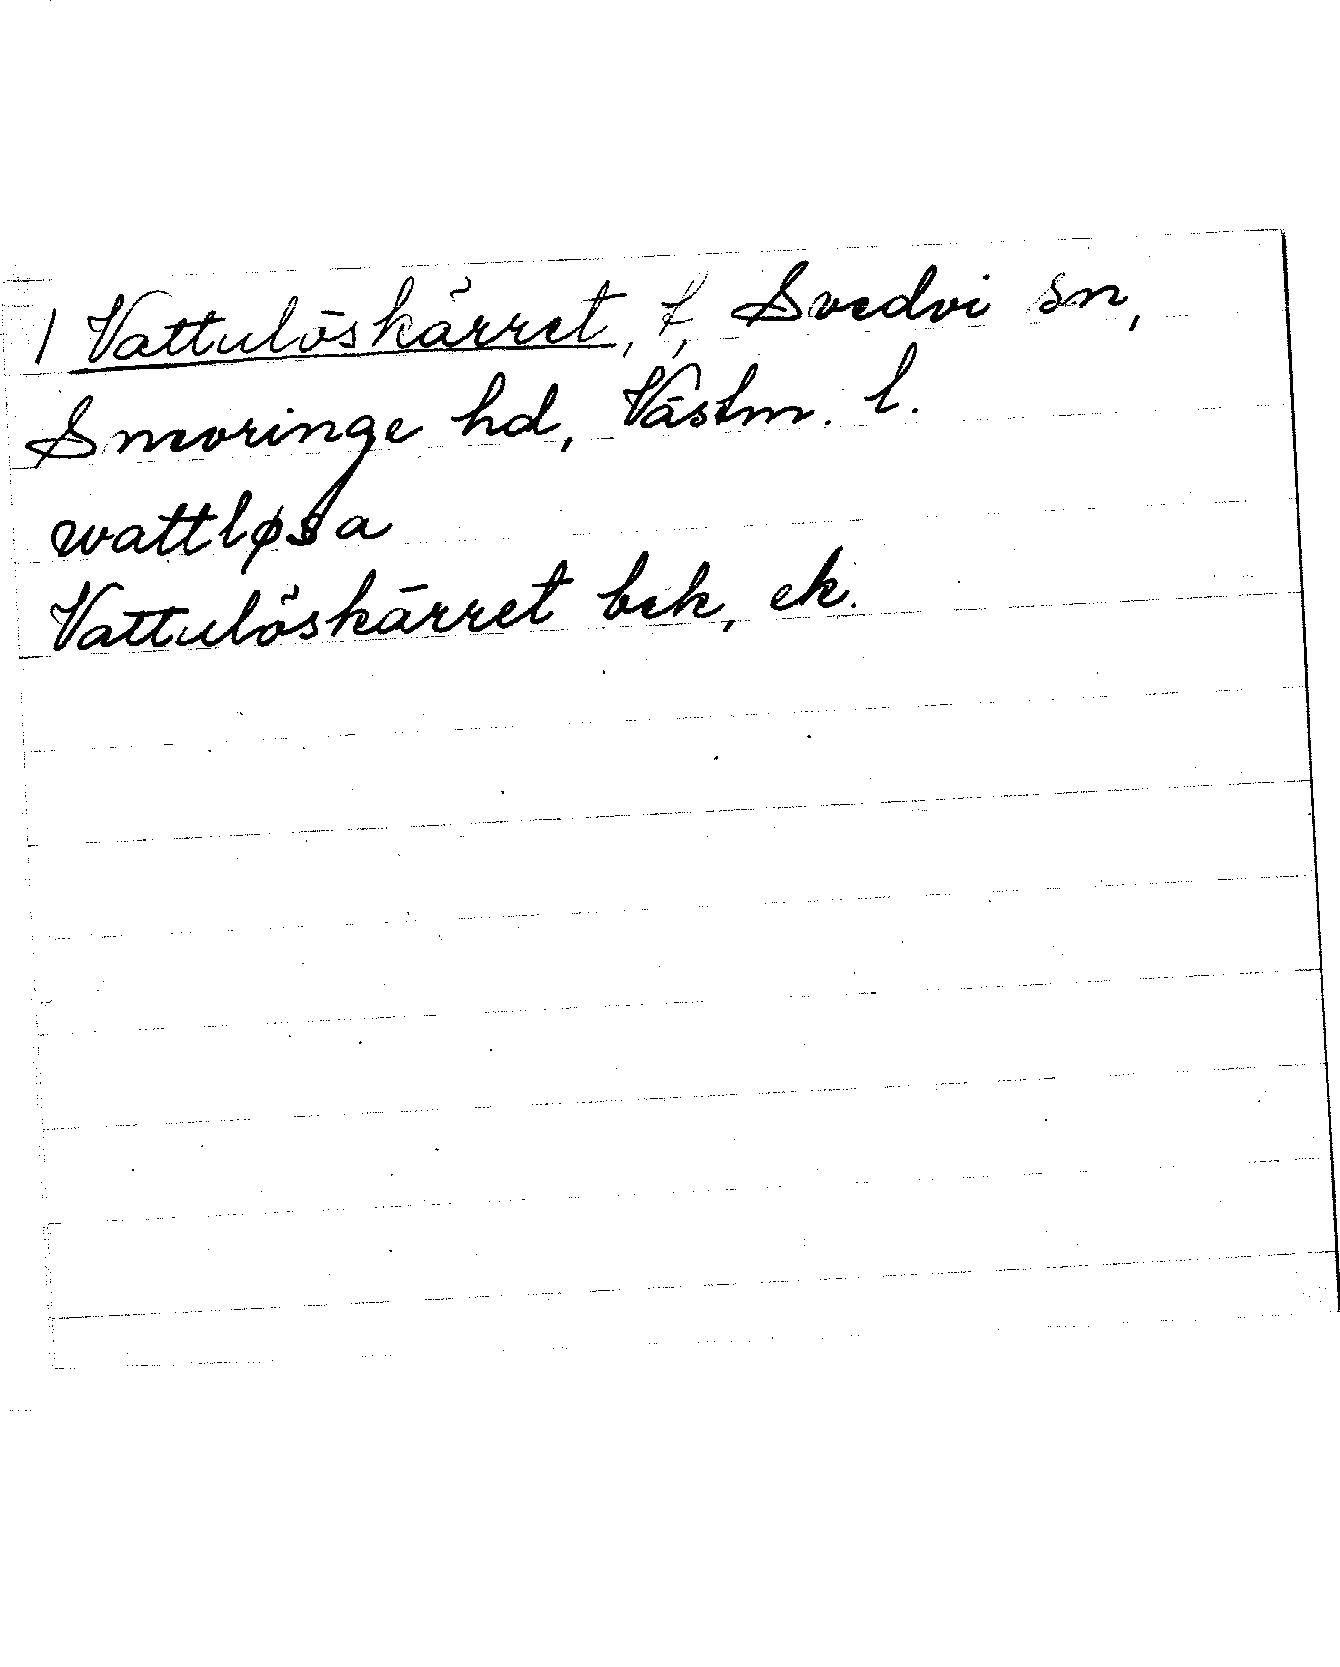 1 Vattulöskärret, f, Svedvi sn,
Snevringe hd, Västm. l.
wattløsa
Vattulöskärret bek, ek.